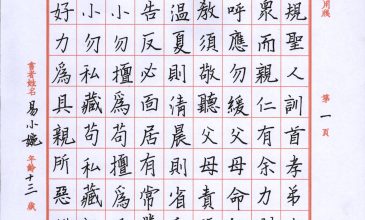 用牋 第一頁
規聖人訓首孝弟
眾而親仁有余力
呼應勿緩父母命
教須敬聽父母責
溫夏則清晨則省
告反必面居有常
小勿擅為苟擅為
小勿私藏苟私藏
好力為具親所惡
書者姓名 易小婉 年齡十三歲